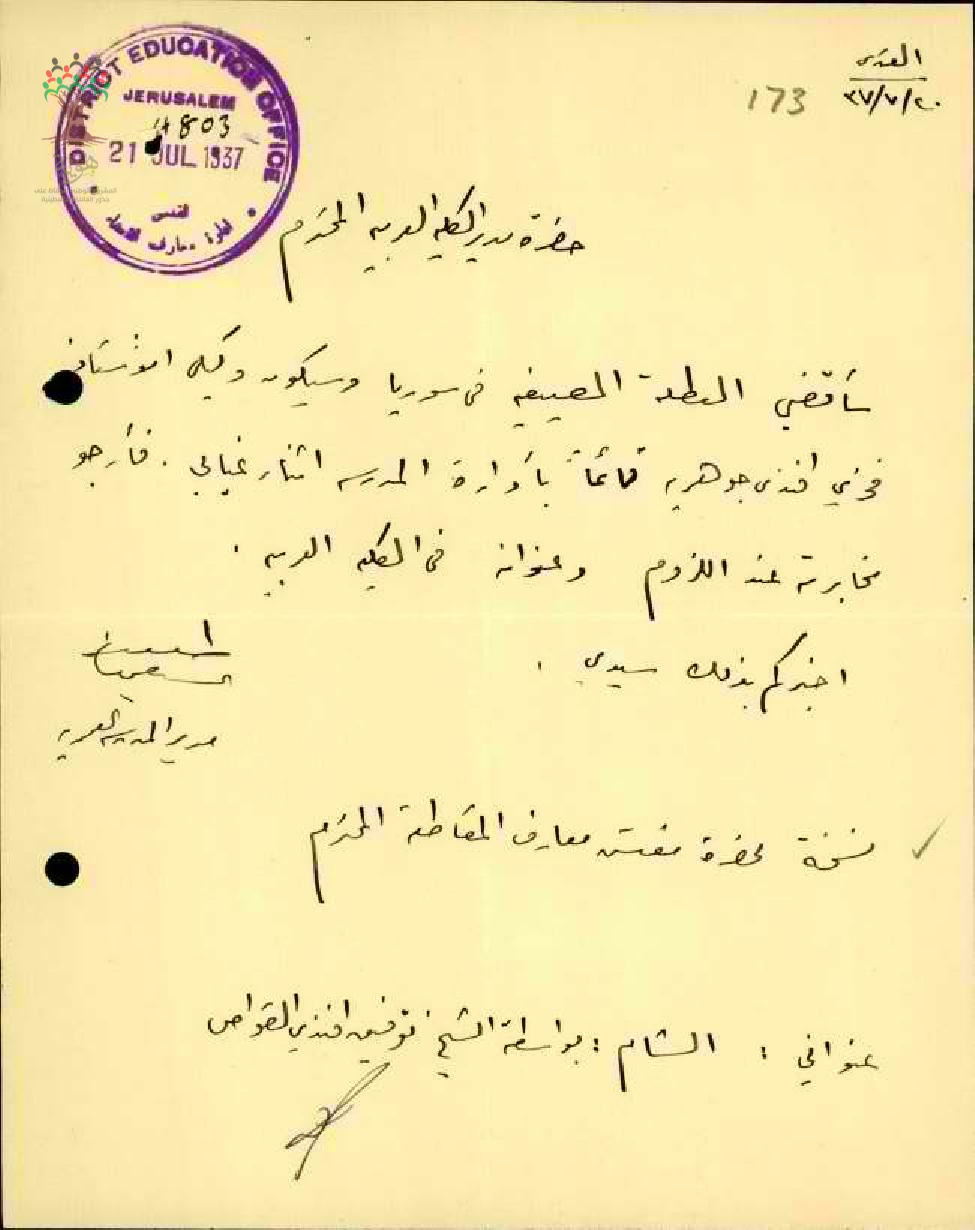 القدس
٢٠/٧/٣٧
173
DISTRICT EDUCATION OFFICE
JERUSALEM
4803
21 JUL 1937
القدس
ادارة معارف القضاء
حضرة مدير الكلية العربية المحترم
سأقضي العطلة الصيفية في سوريا وسيكون وكيلي الاستاذ
فخري افندي جوهريه قائماً بأدارة المدرسه اثناء غيابي . فأرجو
مخابرته عند اللزوم وعنوانه في الكلية العربيه .
اخبركم بذلك سيدي .
مدير المدرسة العمريه
نسخة لحضرة مفتش معارف المقاطعة المحترم
عنواني : الشام : بواسطة الشيخ توفيق افندي القواص